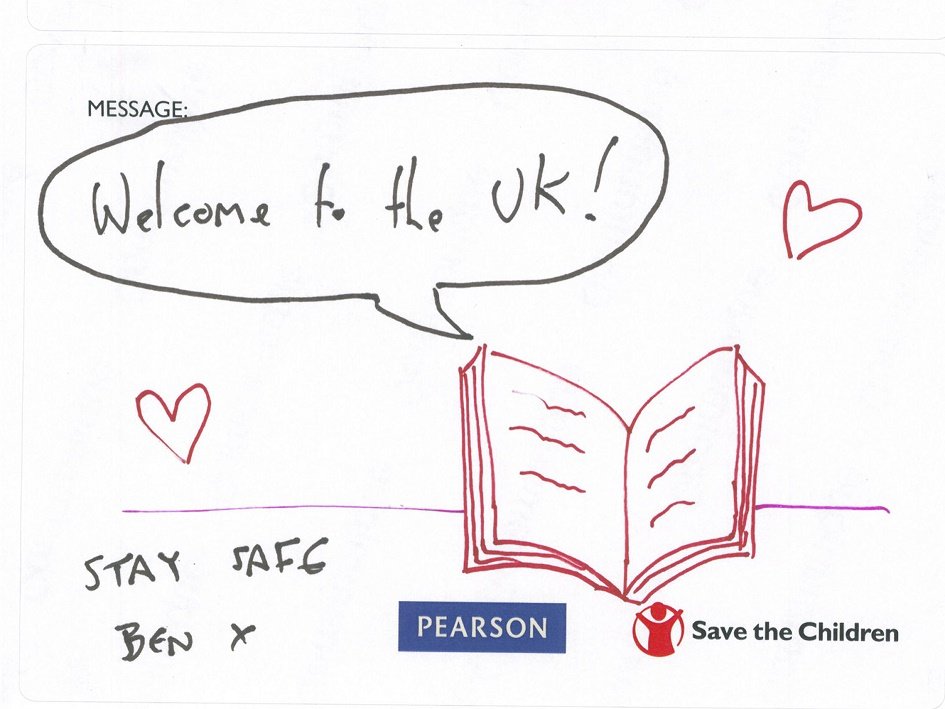 MESSAGE:
Welcome to the UK!
STAY SAFE
BEN X
PEARSON
Save the Children